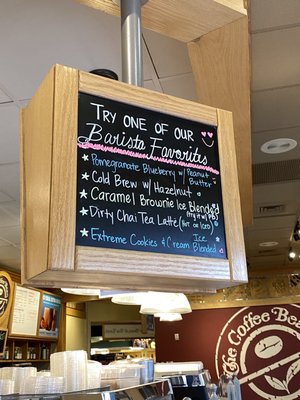 TRY ONE OF OUR
Barista Favorites
Pomegranate Blueberry w/ Peanut
Butter
Cold Brew w/ Hazelnut
Caramel Brownie Ice Blended
Dirty Chai Tea Latte (try it w/ PB)
(Hot or Iced)
Extreme Cookies & Cream Ice
Blended
The Coffee Bean